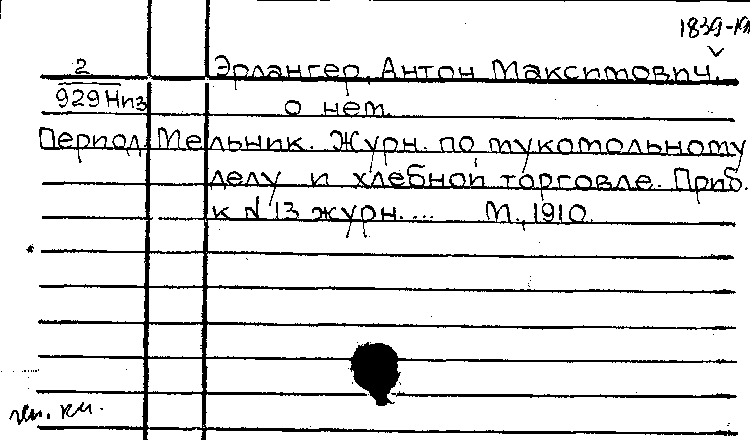 1839-19
2 Эрлангер, Антон Максимович.
929 Нпз о нем.
Период. Мельник. Журн. по мукомольному
делу и хлебной торговле. Приб.
к № 13 журн. ... М., 1910.